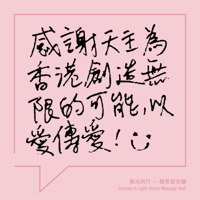 感謝天主為
香港創造無
限的可能，以
愛傳愛！
榮光同行 － 願景留言牆
Journey in Light: Vision Message Wall